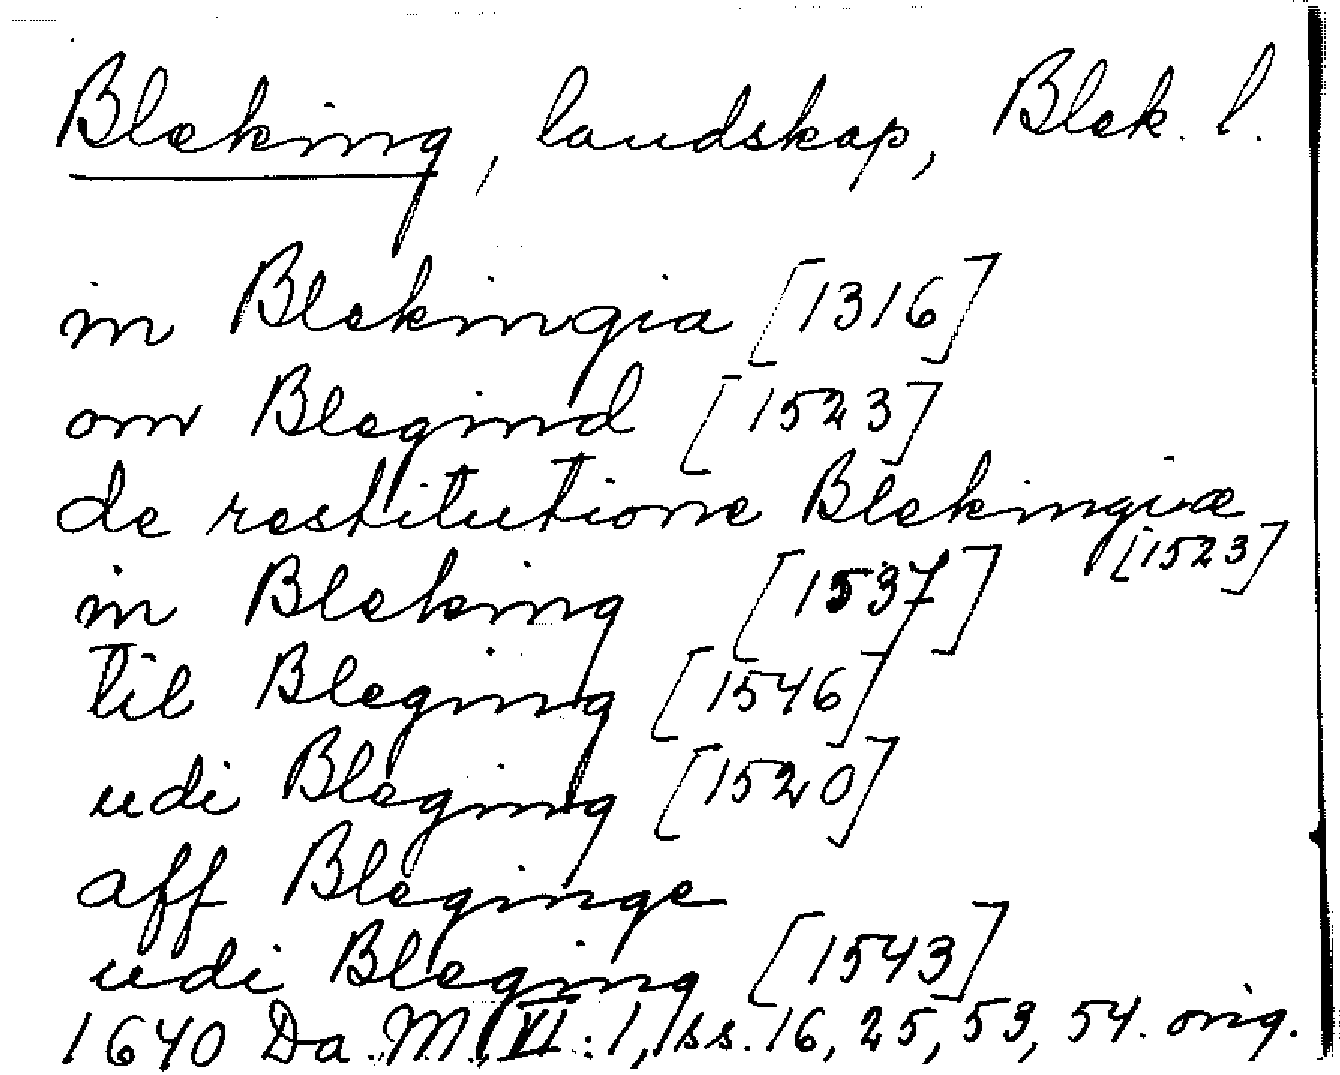 Bleking, landskap, Blek. l.
in Blekingia [1316]
om Blegind [1523]
de restitutione Blekingiæ [1523]
in Bleking [1537]
til Bleging [1546]
udi Bleging [1520]
aff Bleginge
udi Bleging [1543]
1640 Da. M. VI: 1, ss. 16, 25, 53, 54. orig.